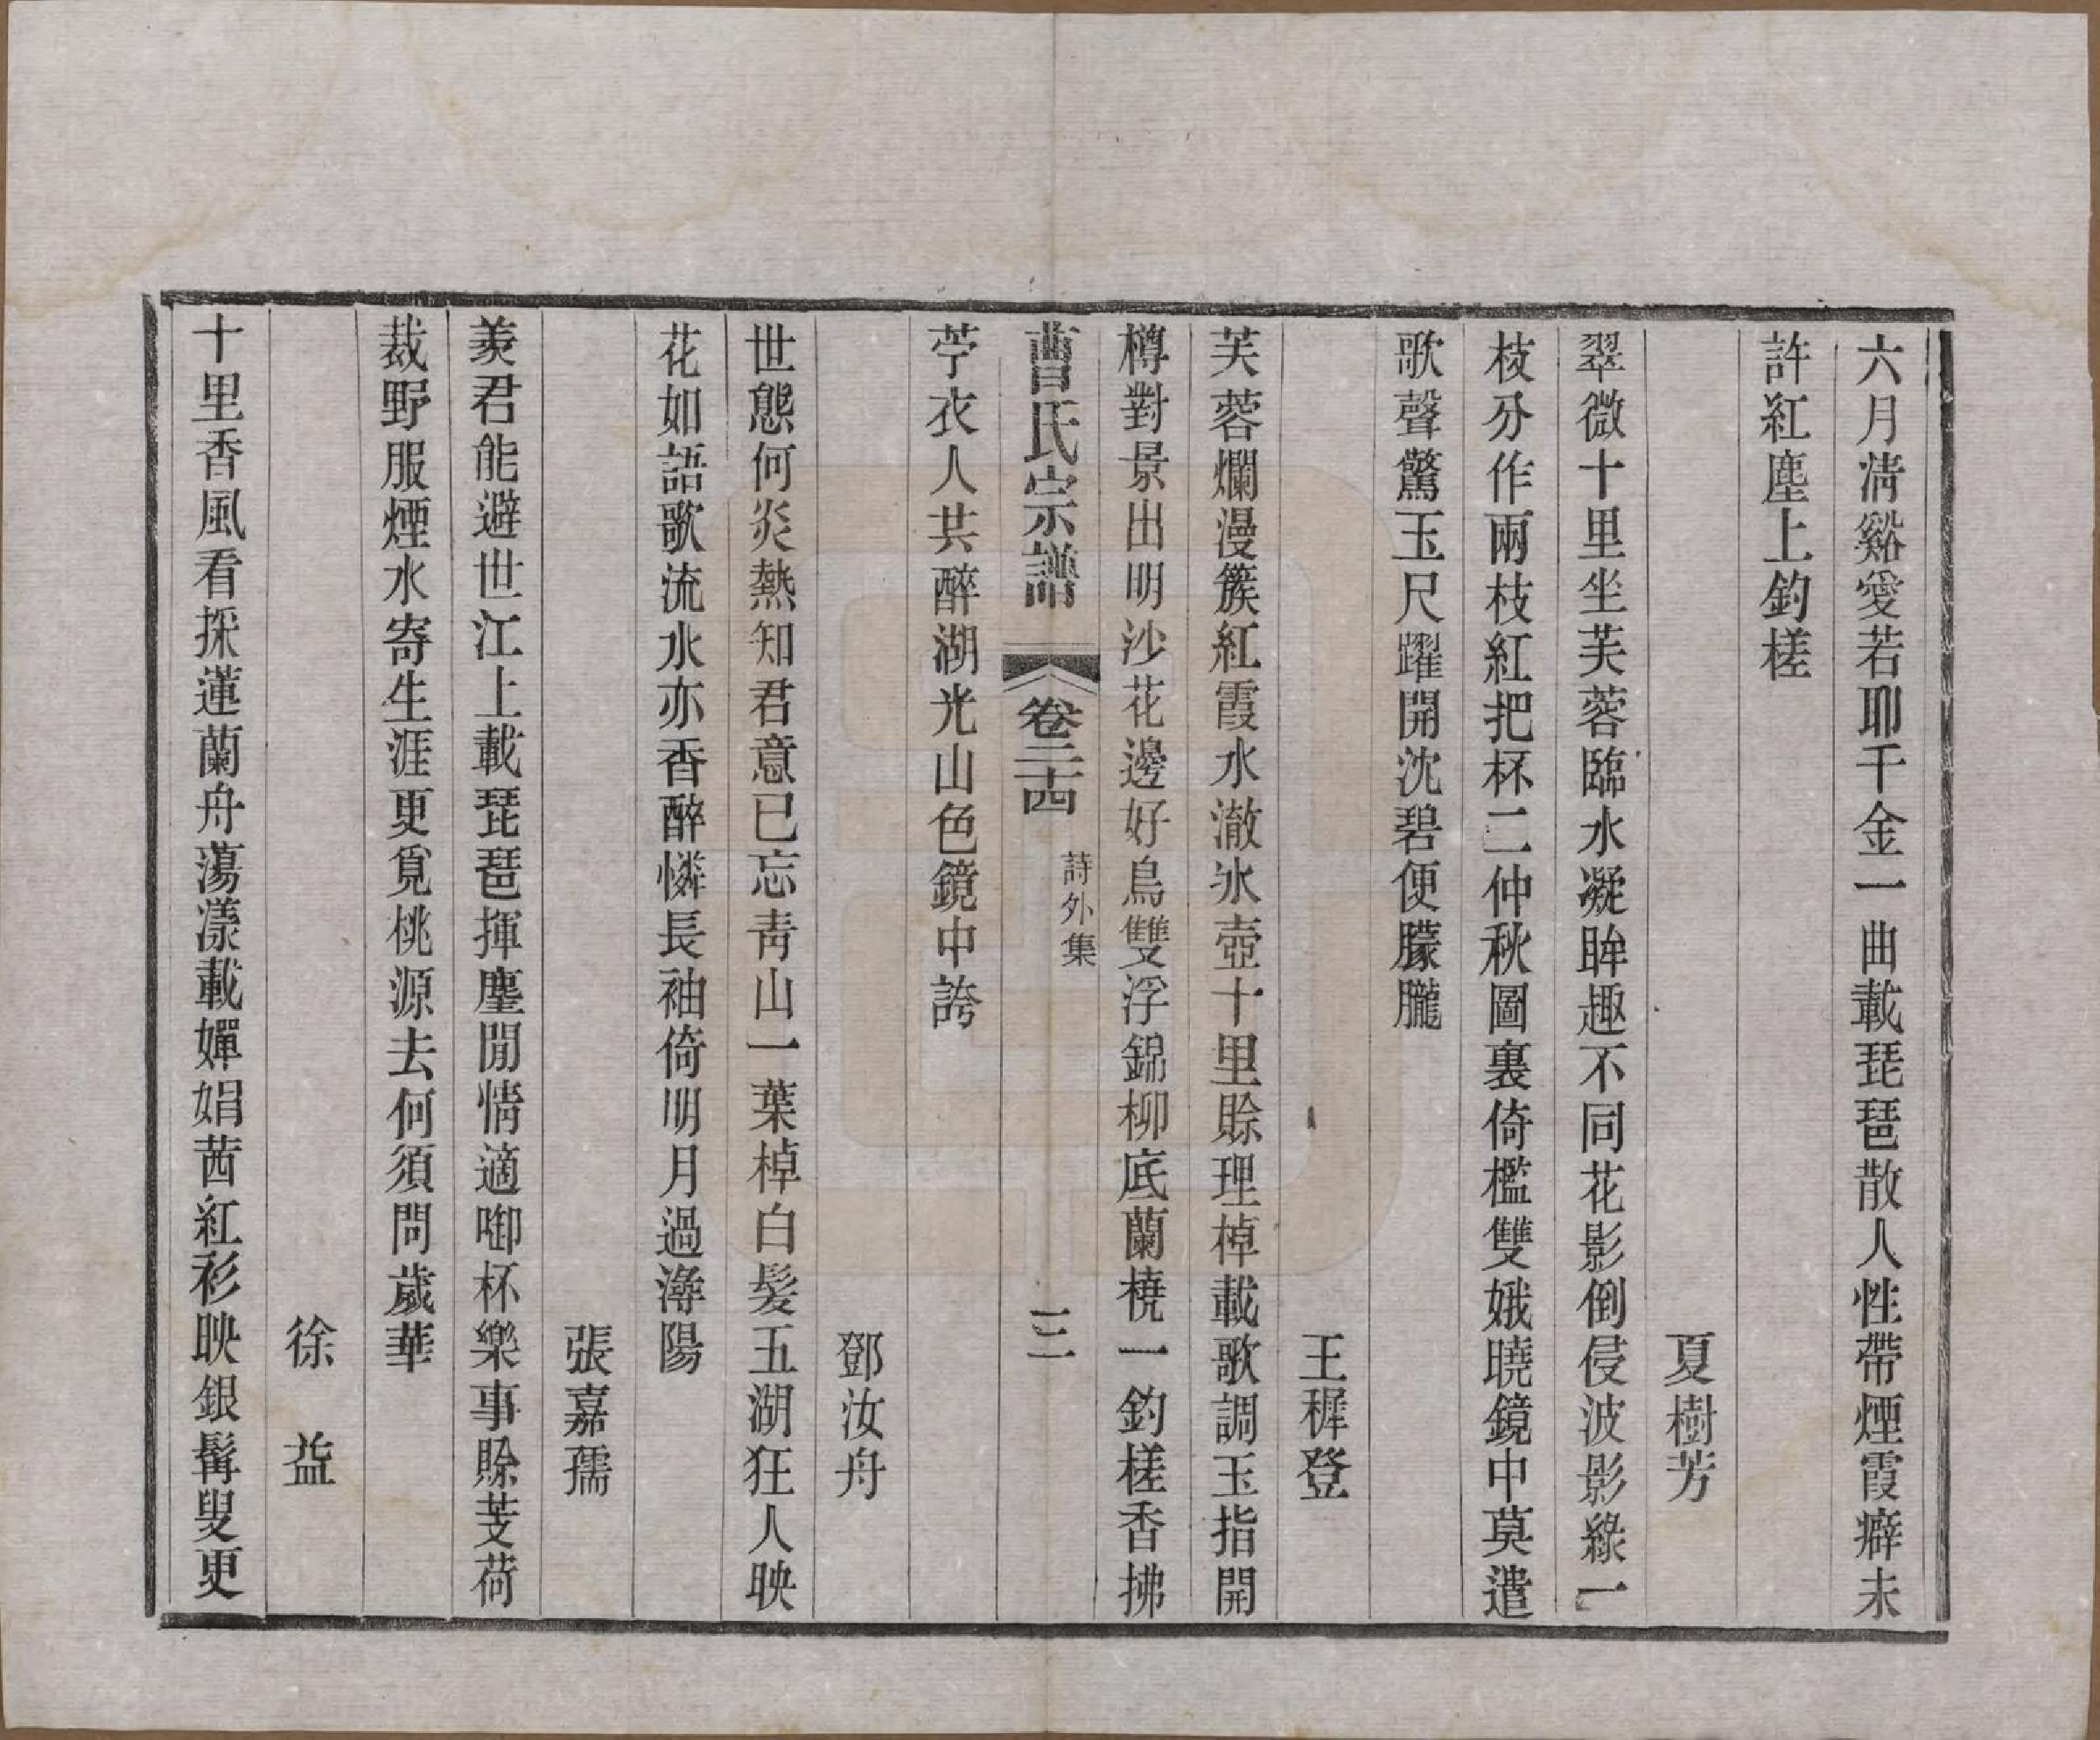 六月淸谿愛若耶千金一曲載琵琶散人性帶煙霞癖未
許紅塵上釣槎
夏樹芳
翠微十里坐芙蓉臨水凝眸趣不同花影倒侵波影綠一
枝分作兩枝紅把杯二仲秋圖裏倚檻雙娥曉鏡中莫遣
歌聲驚玉尺躍開沈碧便朦朧
王穉登
芙蓉爛漫簇紅霞水澈氷壺十里賒理棹載歌調玉指開
樽對景出明沙花邊好鳥雙浮錦柳底蘭橈一釣槎香拂
曹氏宗譜
卷二十四
詩外集
三
苧衣人共醉湖光山色鏡中誇
鄧汝舟
世態何炎熱知君意已忘靑山一葉棹白髮五湖狂人映
花如語歌流水亦香醉憐長袖倚明月過潯陽
張嘉孺
羨君能避世江上載琵琶揮塵閒情適啣杯樂事賒芰荷
裁野服煙水寄生涯更覓桃源去何須問歲華
徐益
十里香風看採蓮蘭舟蕩漾載嬋娟茜紅衫映銀髯叟更